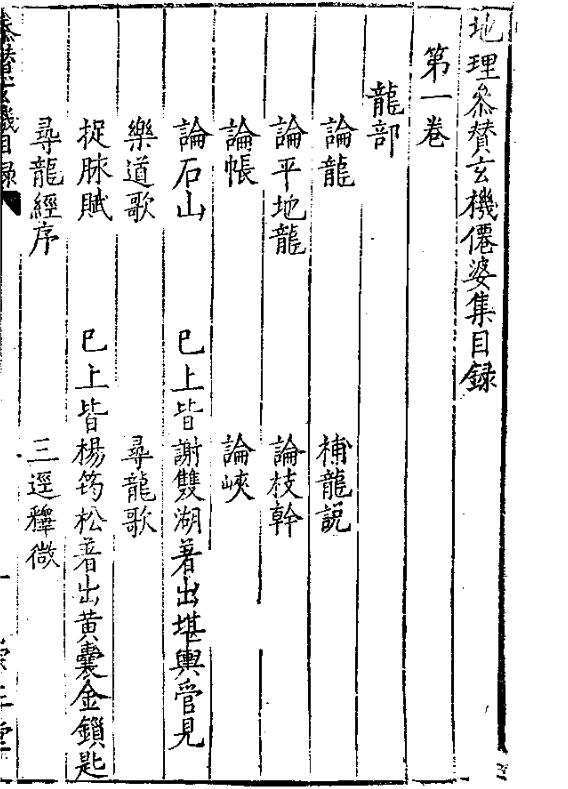 地理叅贊玄機僊婆集目録
第一卷
龍部
論龍　補龍說
論平地龍　論枝幹
論帳　論峽
論石山　巳上皆謝雙湖著出堪輿管見
樂道歌　尋龍歌
捉脉賦　巳上皆楊筠松著出黃囊金鎖匙
尋龍經序　三逕釋微
叅贊玄機目録
一